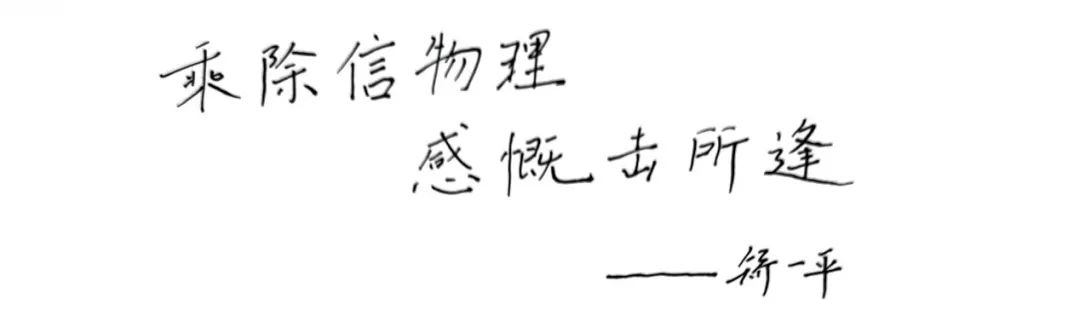 乘除信物理
感慨击所逢
——一平